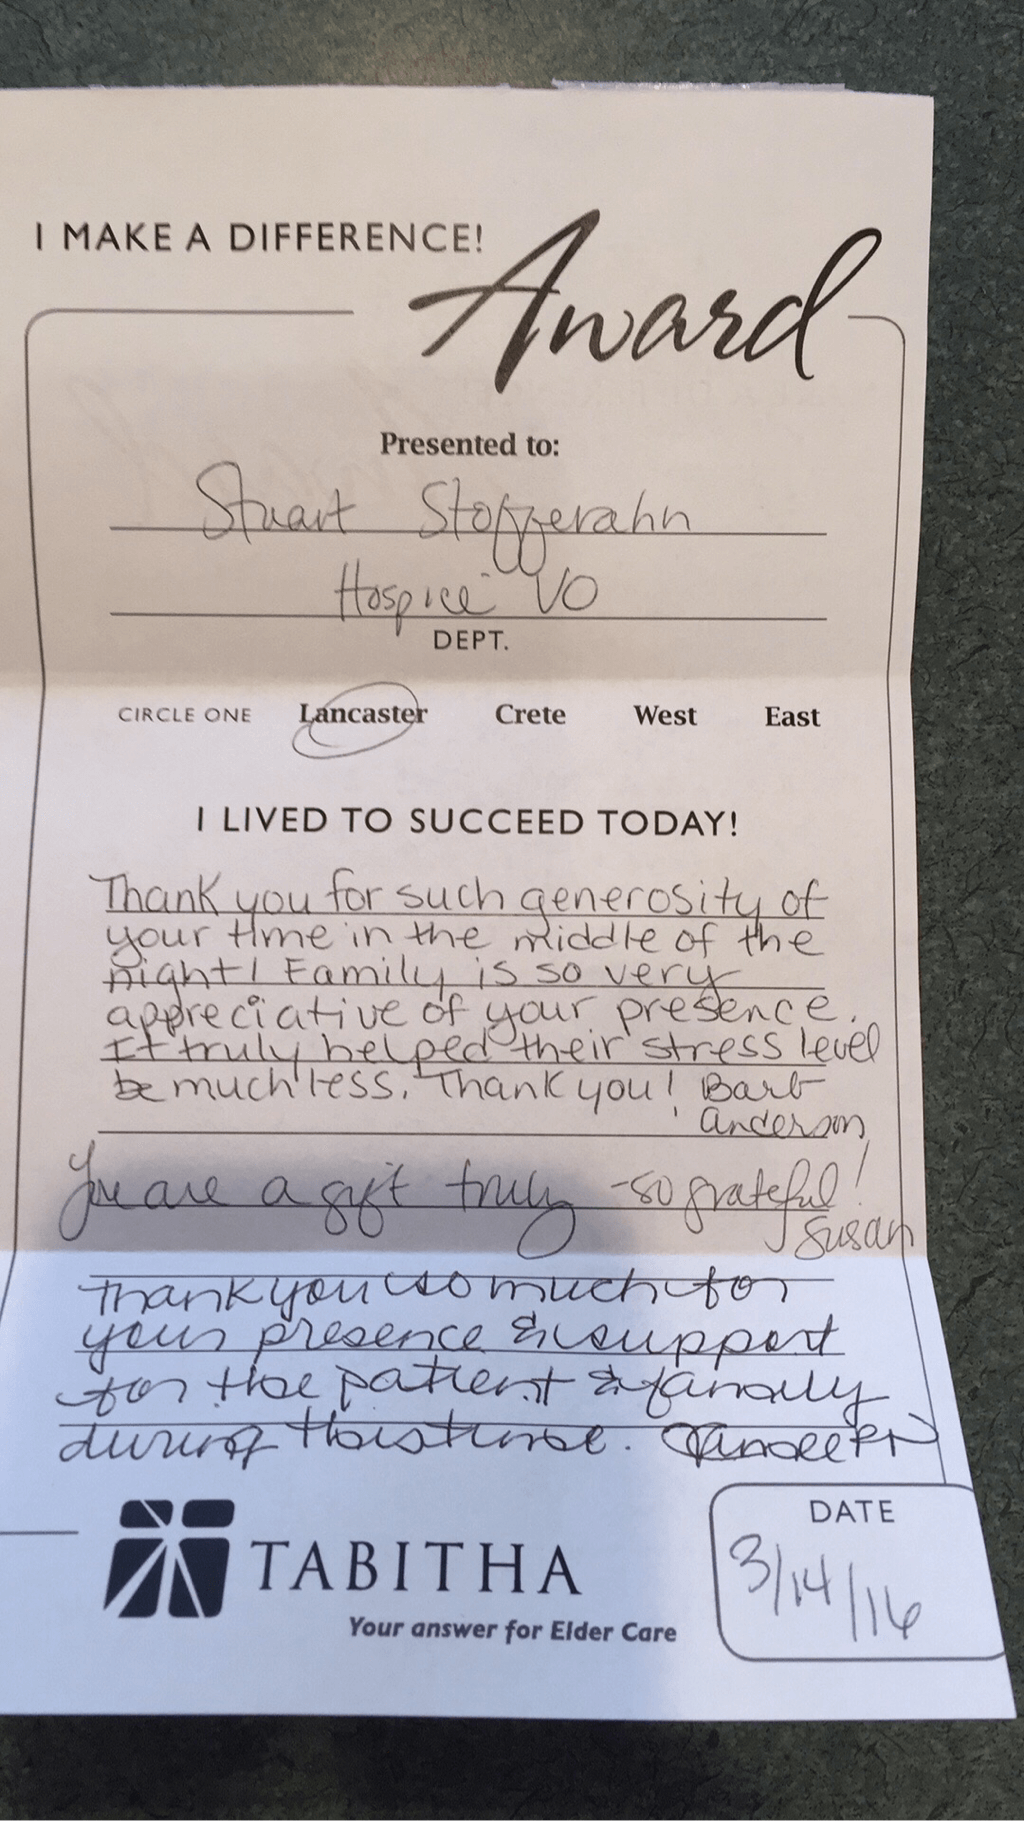 I MAKE A DIFFERENCE!
Award
Presented to:
Stuart Stofferahn
Hospice VO
DEPT.
CIRCLE ONE Lancaster Crete West East
I LIVED TO SUCCEED TODAY!
Thank you for such generosity of
your time in the middle of the
night! Family is so very
appreciative of your presence.
It truly helped their stress level
be much less. Thank you! Barb
Anderson
You are a gift truly - so grateful!
Susan
Thank you so much for
your presence & support
for the patient & family
during this time. RN
TABITHA
Your answer for Elder Care
DATE
3/14/16